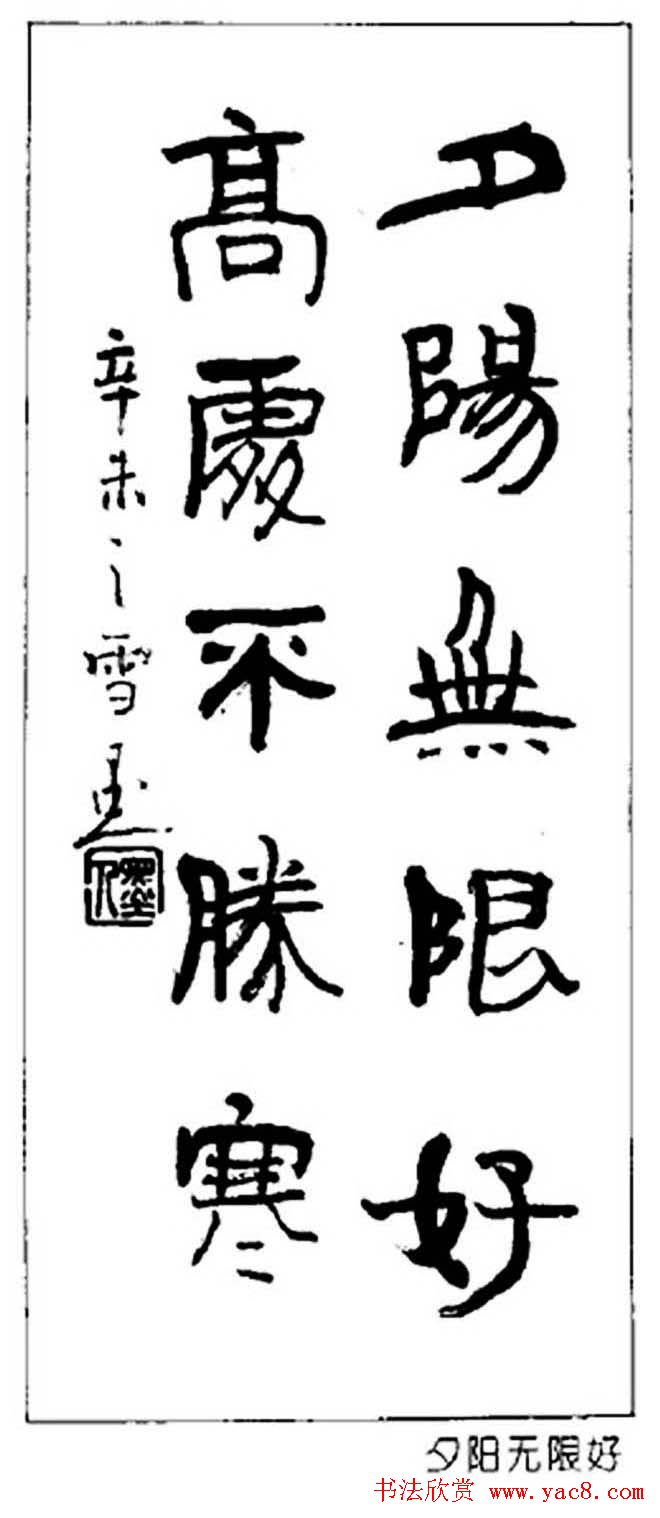 夕陽無限好
高處不勝寒
辛未之雪墨
夕阳无限好
书法欣赏 www.yac8.com